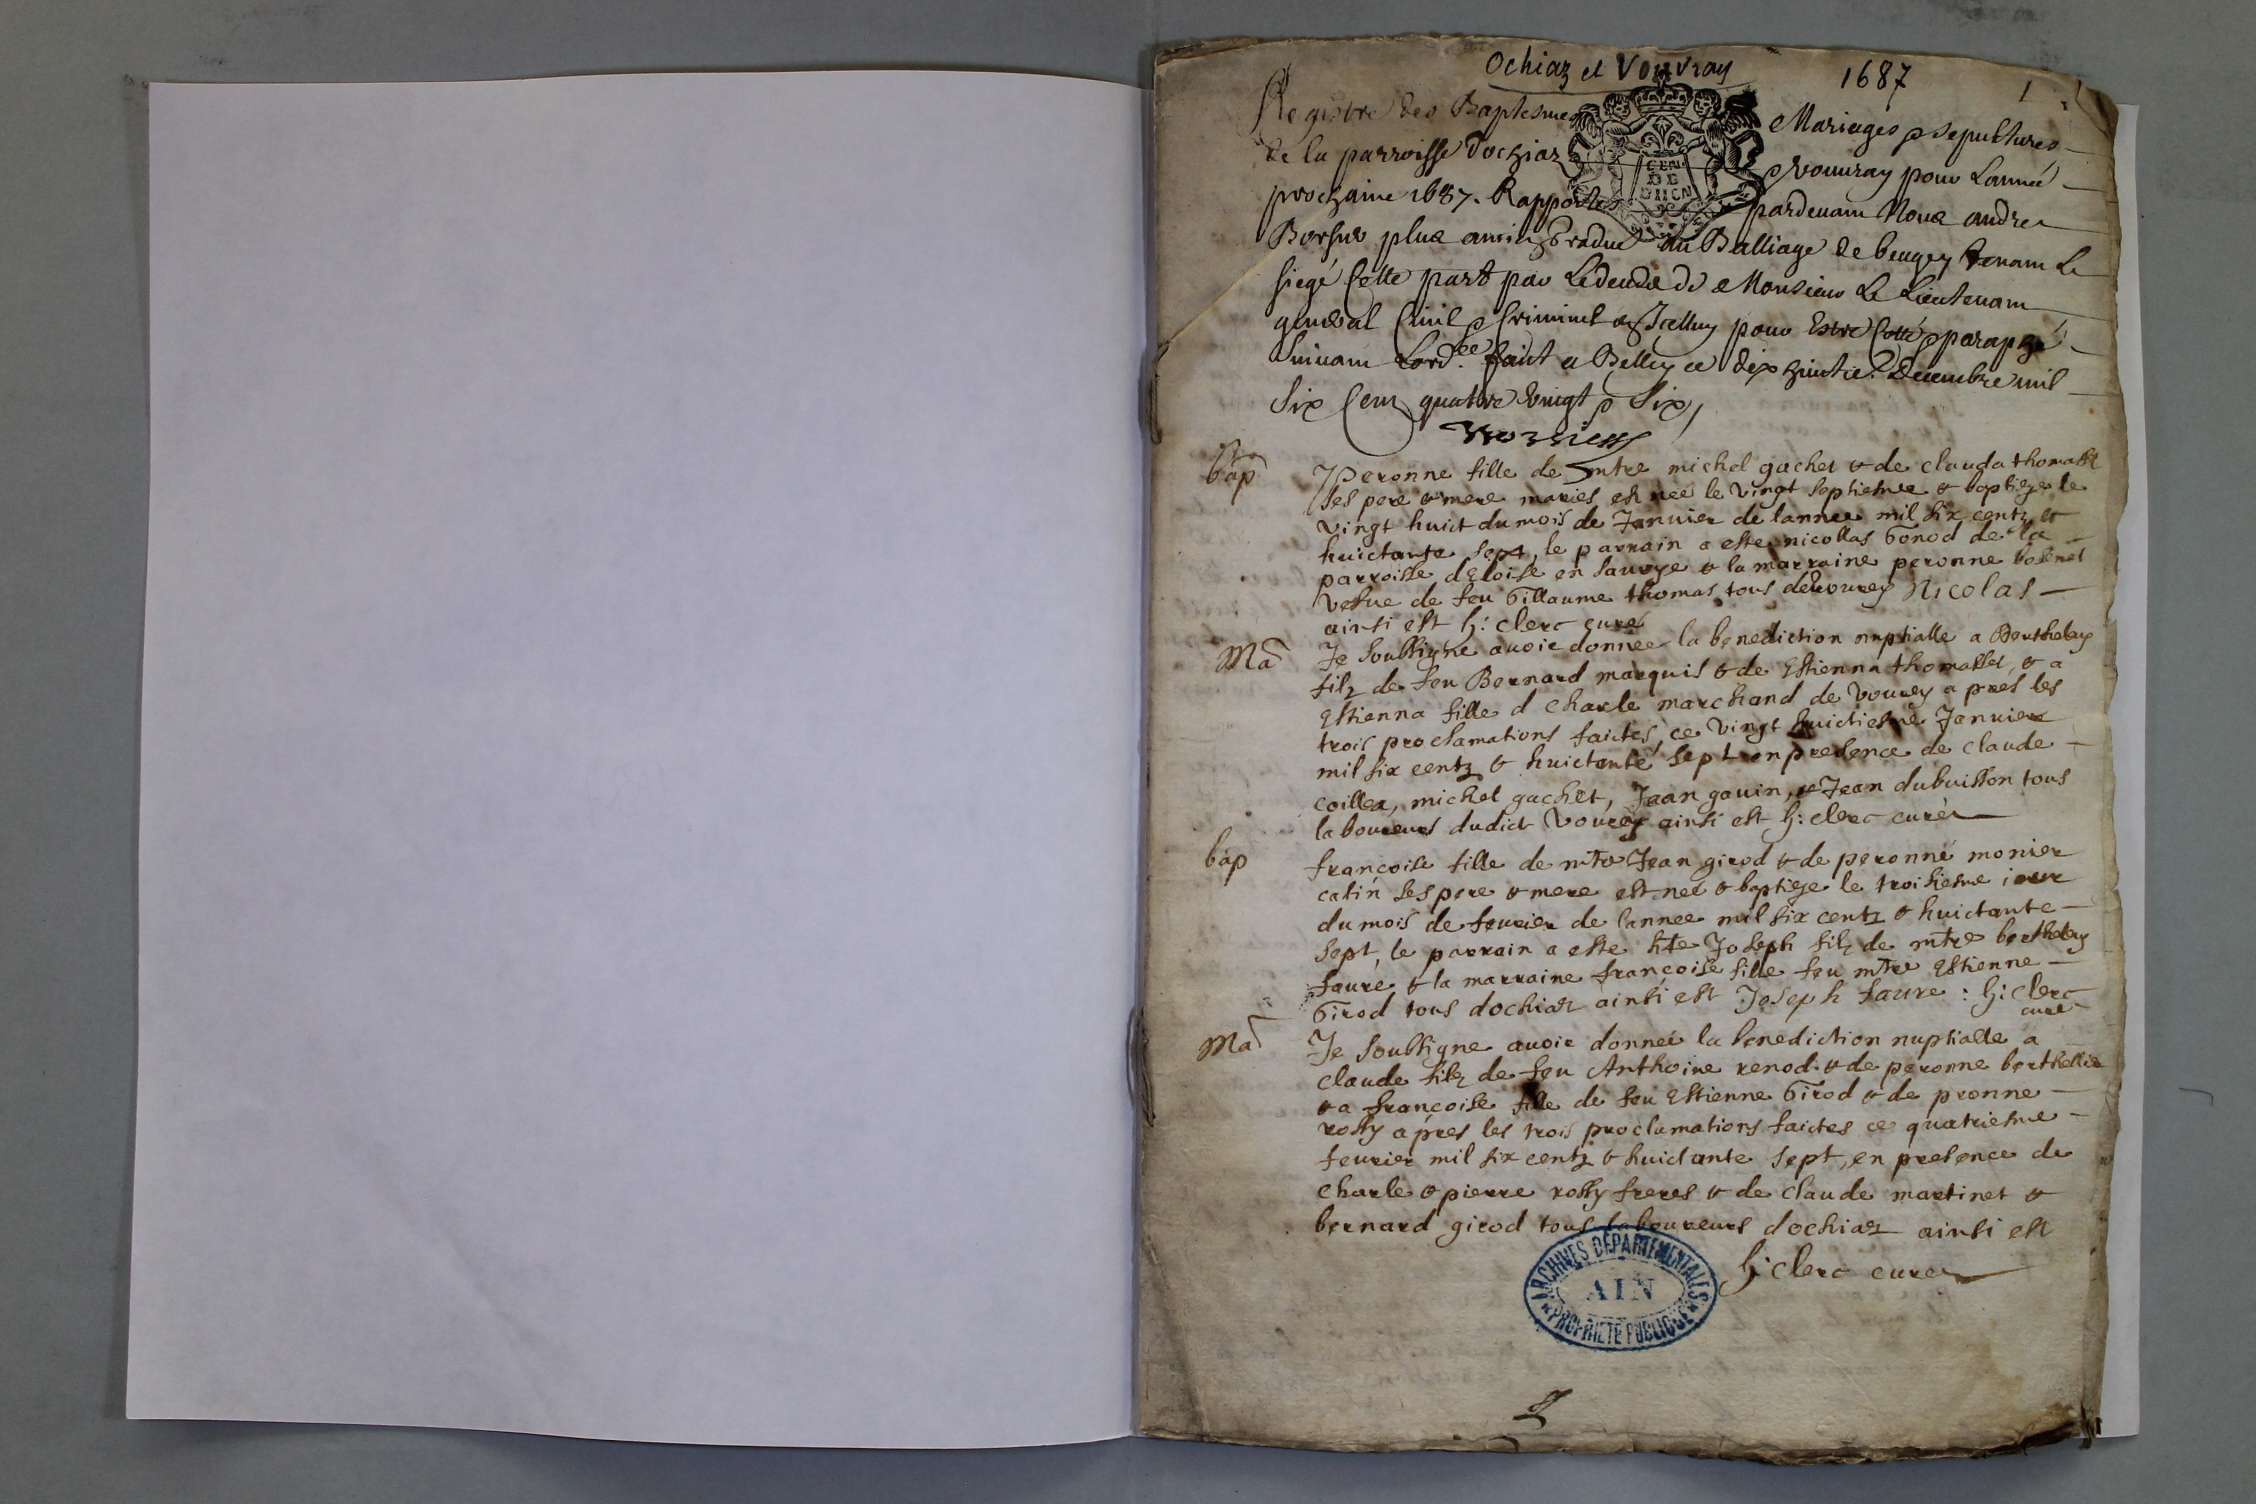 Ochiaz et Vouvray 1687 1
Registre des Baptesmes Mariages & sepultures
de la parroisse dochiaz & vouvray pour Lanneé
prochaine 1687. Rapportes pardevant Nous andre
plus antien gradué au Balliage de beugey tenant Le
siegé Cette part par Ledeude de Monsieur Le Lieutenant
general Civil & Criminel dIcelluy pour Estre Cotté & paraphé
Suivant Lord.ce faict a Belley ce dix huictie. Decembre mil
Six Cent quatre vingt & Six,
bap peronne fille de mtre michel gachet & de clauda thomasset
ses pere & mere mariés est neé le vingt septiesme & baptizeé le
vingt huict du mois de Janvier de lannee mil six centz &
huictante sept, le parrain a este nicollas Gonod de la
parroisse dEloise en savoye & la marraine peronne
vefue de feu Gillaume thomas tous devourey Nicolas
ainsi est h: clerc curé
Ma Je soubsigné avoir donnee la benediction nuptialle a Berthelemy
filz de feu Bernard marquis & de Estienna thomasset, & a
Estienna fille d charle marchand de vourey a prés les
trois proclamations faictes, ce vingt huictiesme Janvier
mil six centz & huictante sept en presence de claude
coillea, michel gachet, Jean gavin, & Jean dubuisson tous
laboureurs dudict vourey ainsi est h: clerc curé
bap francoise fille de mtre Jean girod & de peronne monier
catin ses pere & mere est neé & baptizeé le troisiesme iour
du mois de fevrier de lannee mil six centz & huictante
sept, le parrain a este hte Joseph filz de mtre berthelemy
faure & la marraine francoise fille feu mtre Estienne
Girod tous dochiaz ainsi est Joseph faure : h: clerc
curé
Ma Je soubsigne avoir donneé la benediction nuptialle a
claude filz de feu Anthoine renod & de peronne berthellier
& a francoise fille de feu Estienne Girod & de pronne
rossy aprés les trois proclamations faictes ce quatriesme
fevrier mil six centz & huictante sept, en presence de
charle & pierre rossy freres & de claude martinet &
bernard girod tous laboureurs dochiaz ainsi est
h: clerc curé
ARCHIVES DÉPARTEMENTALES
AIN
PROPRIÉTÉ PUBLIQUE